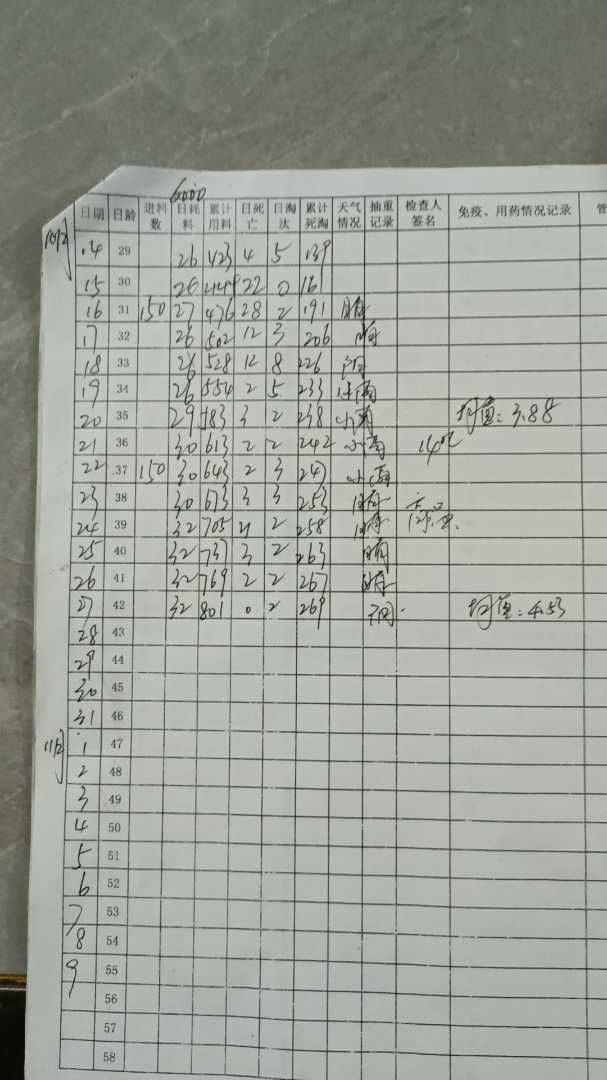 6000
日期 日龄 进料数 日耗料 累计用料 日死亡 日淘汰 累计死淘 天气情况 抽重记录 检查人签名 免疫、用药情况记录 管
10月 14 29 26 423 4 5 139
15 30 26 449 22 0 161
16 31 150 27 476 28 2 191 晴
17 32 26 502 12 3 206 晴
18 33 26 528 12 8 226 阴
19 34 26 554 2 5 233 小雨
20 35 29 583 3 2 238 小雨 均重:3.88
21 36 30 613 2 2 242 小雨
22 37 150 30 643 2 3 247 小雨
23 38 30 673 3 3 253 晴
24 39 32 705 2 258 晴
25 40 32 737 3 2 263 晴
26 41 32 769 2 2 267 晴
27 42 32 801 0 2 269 阴 均重:4.53
28 43
29 44
30 45
31 46
11月 1 47
2 48
3 49
4 50
5 51
6 52
7 53
8 54
9 55
56
57
58